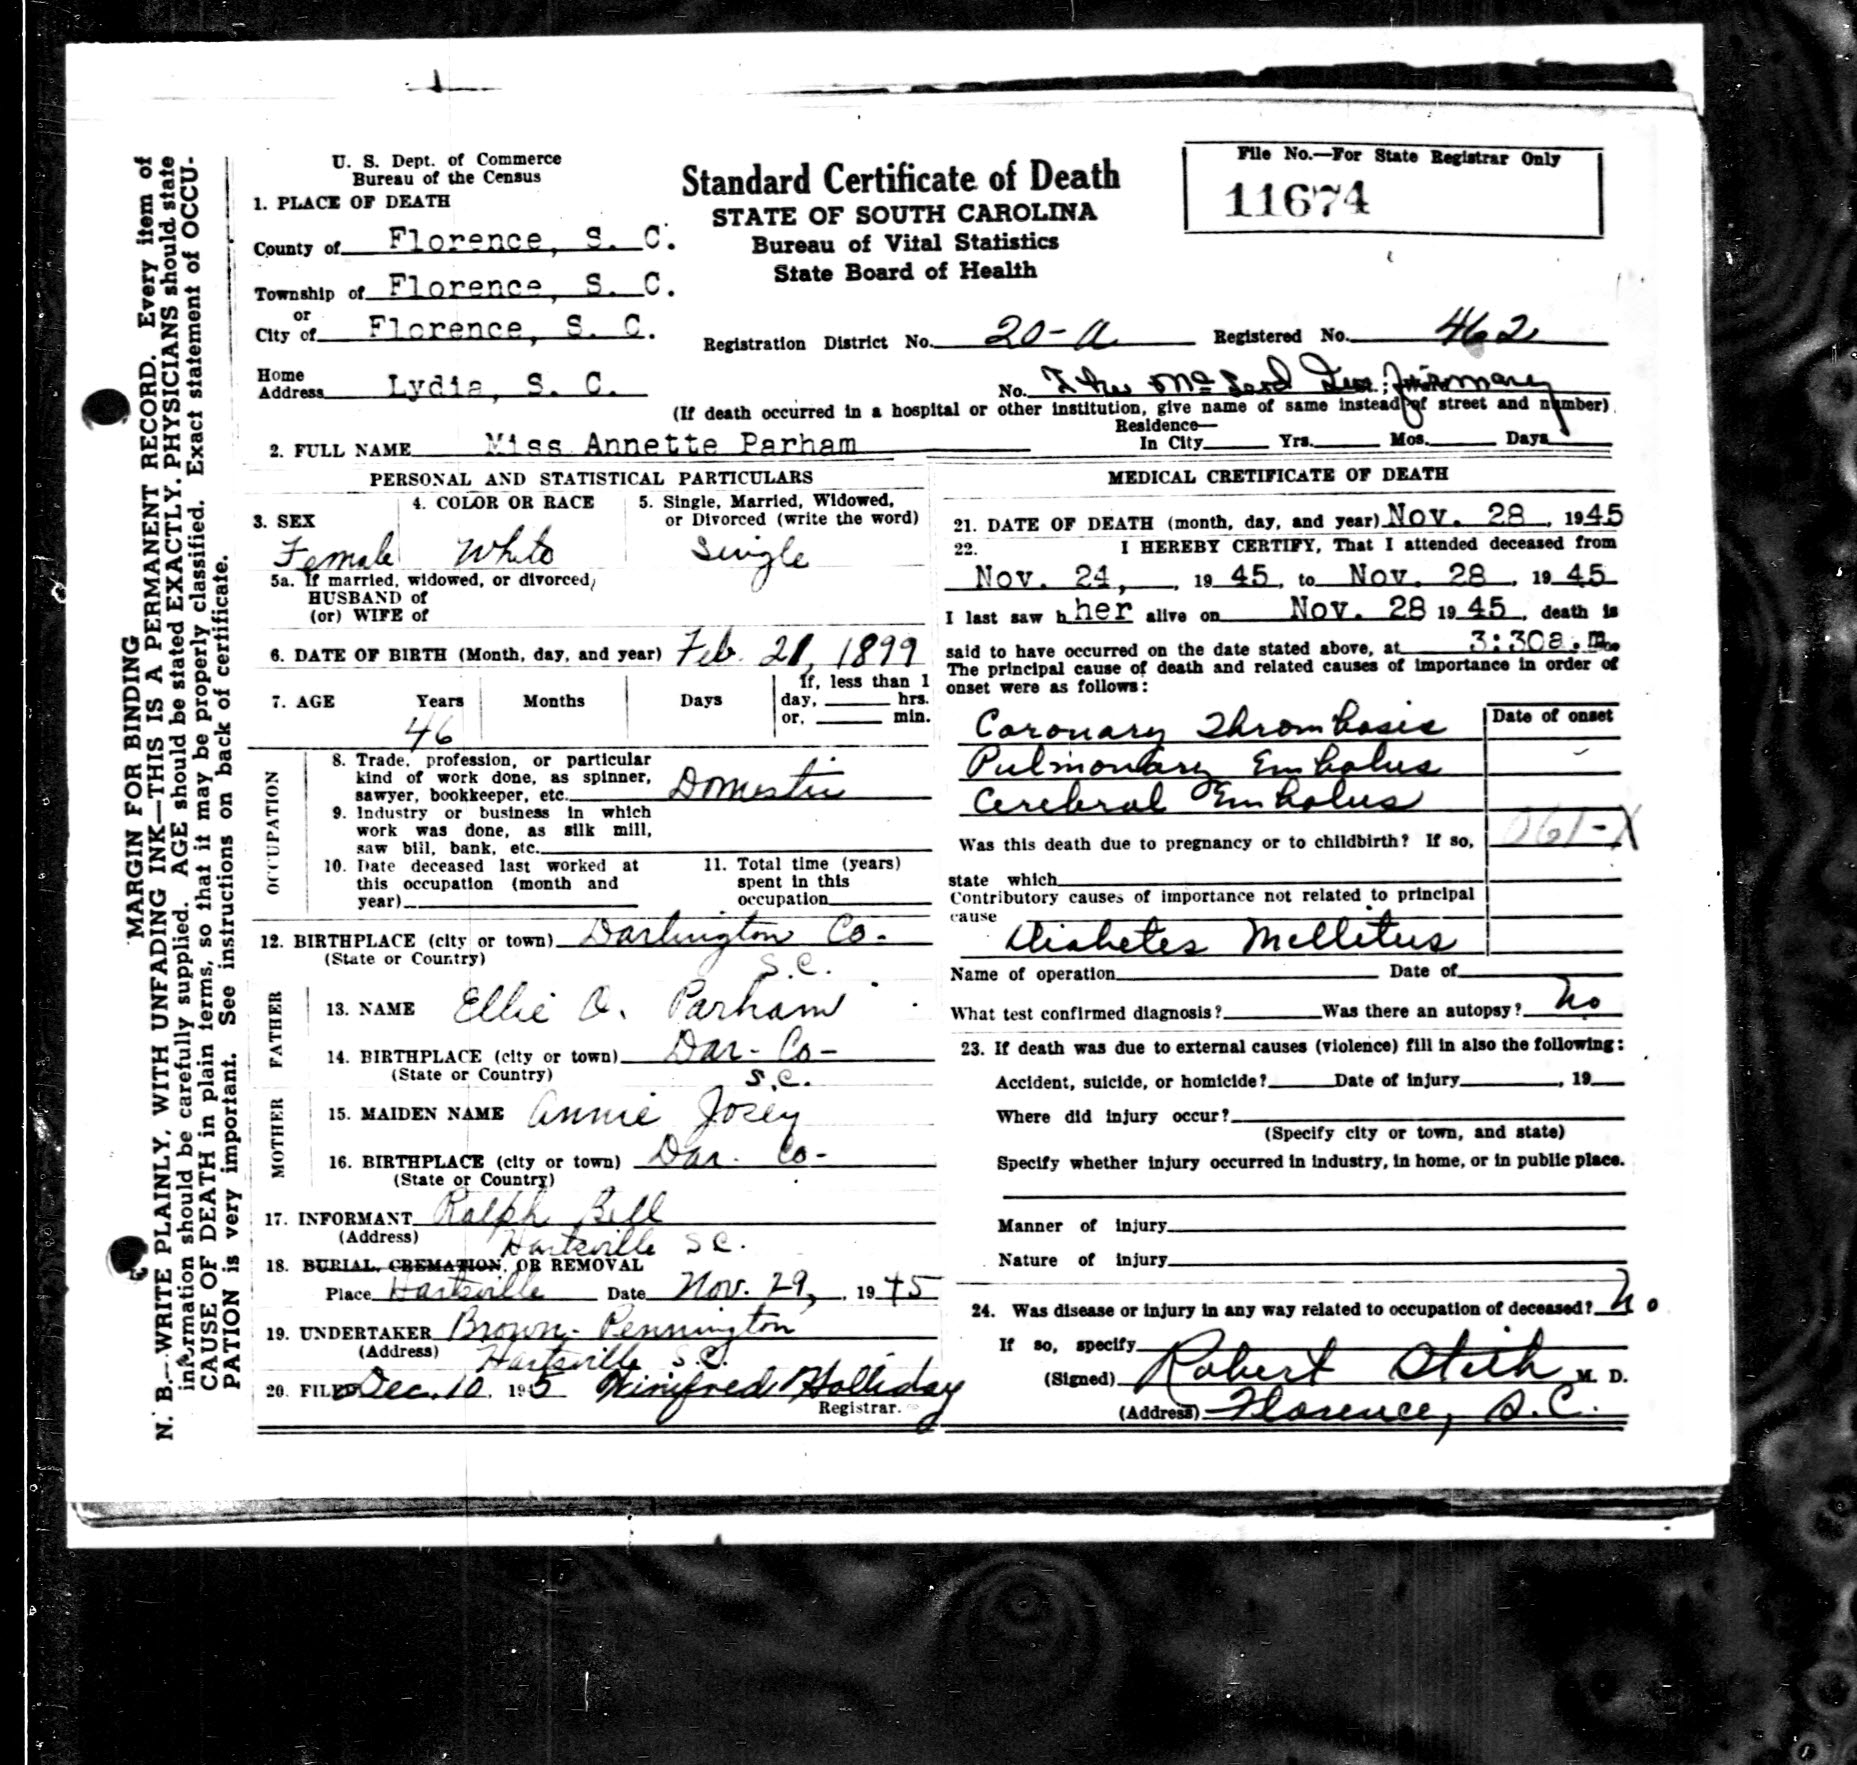 N. B.—WRITE PLAINLY, WITH UNFADING INK—THIS IS A PERMANENT RECORD. Every item of
information should be carefully supplied. AGE should be stated EXACTLY. PHYSICIANS should state
CAUSE OF DEATH in plain terms, so that it may be properly classified. Exact statement of OCCU-
PATION is very important. See instructions on back of certificate.
MARGIN FOR BINDING
U. S. Dept. of Commerce
Bureau of the Census
Standard Certificate of Death
STATE OF SOUTH CAROLINA
Bureau of Vital Statistics
State Board of Health
File No.—For State Registrar Only
11674
1. PLACE OF DEATH
County of Florence, S. C.
Township of Florence, S. C.
or
City of Florence, S. C.
Registration District No. 20-A Registered No. 462
Home
Address Lydia, S. C.
No. The McLeod Infirmary
(If death occurred in a hospital or other institution, give name of same instead of street and number)
Residence—
In City Yrs. Mos. Days
2. FULL NAME Miss Annette Parham
PERSONAL AND STATISTICAL PARTICULARS
3. SEX 4. COLOR OR RACE 5. Single, Married, Widowed,
or Divorced (write the word)
Female White Single
5a. If married, widowed, or divorced,
HUSBAND of
(or) WIFE of
6. DATE OF BIRTH (Month, day, and year) Feb. 21, 1899
7. AGE Years Months Days If, less than 1
day, hrs.
or, min.
46
OCCUPATION
8. Trade, profession, or particular
kind of work done, as spinner,
sawyer, bookkeeper, etc. Domestic
9. Industry or business in which
work was done, as silk mill,
saw bill, bank, etc.
10. Date deceased last worked at
this occupation (month and
year)
11. Total time (years)
spent in this
occupation
12. BIRTHPLACE (city or town) Darlington Co-
(State or Country) S.C.
FATHER
13. NAME Ellie O. Parham
14. BIRTHPLACE (city or town) Dar- Co-
(State or Country) S.C.
MOTHER
15. MAIDEN NAME Annie Josey
16. BIRTHPLACE (city or town) Dar. Co-
(State or Country)
17. INFORMANT Ralph Bell
(Address) Hartsville S C.
18. BURIAL, CREMATION, OR REMOVAL
Place Hartsville Date Nov. 29, 1945
19. UNDERTAKER Brown-Pennington
(Address) Hartsville S.C.
20. FILED Dec. 10, 1945 Winifred Holliday
Registrar.
MEDICAL CRETIFICATE OF DEATH
21. DATE OF DEATH (month, day, and year) Nov. 28, 1945
22. I HEREBY CERTIFY, That I attended deceased from
Nov. 24, 1945, to Nov. 28, 1945
I last saw h her alive on Nov. 28 1945, death is
said to have occurred on the date stated above, at 3:30a.m.
The principal cause of death and related causes of importance in order of
onset were as follows:
Date of onset
Coronary Thrombosis
Pulmonary Embolus
Cerebral Embolus
061-X
Was this death due to pregnancy or to childbirth? If so,
state which
Contributory causes of importance not related to principal
cause
Diabetes Mellitus
Name of operation Date of
What test confirmed diagnosis? Was there an autopsy? No
23. If death was due to external causes (violence) fill in also the following:
Accident, suicide, or homicide? Date of injury , 19
Where did injury occur?
(Specify city or town, and state)
Specify whether injury occurred in industry, in home, or in public place.
Manner of injury
Nature of injury
24. Was disease or injury in any way related to occupation of deceased? No
If so, specify
(Signed) Robert Stith M. D.
(Address) Florence, S.C.